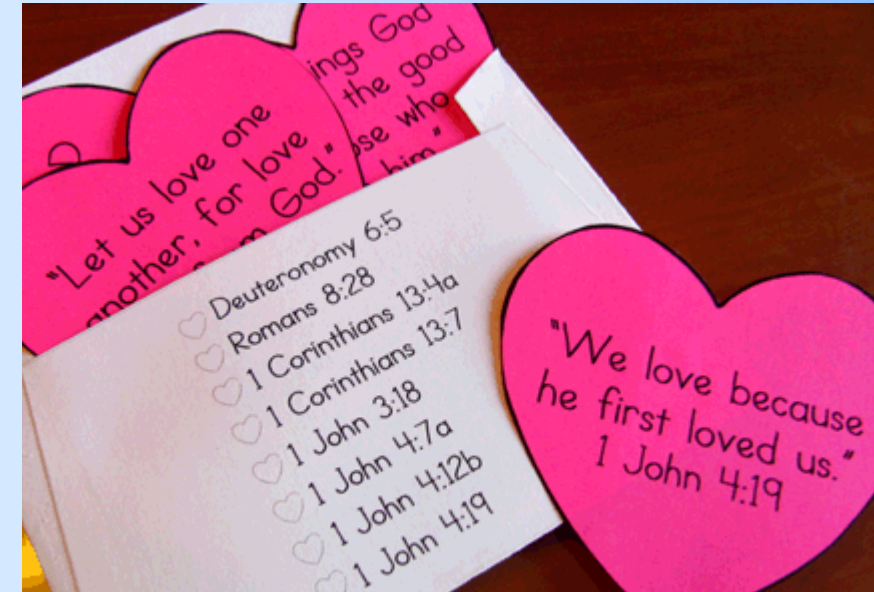 ings God
the good
ose who
him"
"Let us love one
another, for love
God."
Deuteronomy 6:5
Romans 8:28
1 Corinthians 13:4a
1 Corinthians 13:7
1 John 3:18
1 John 4:7a
1 John 4:12b
1 John 4:19
"We love because
he first loved us."
1 John 4:19